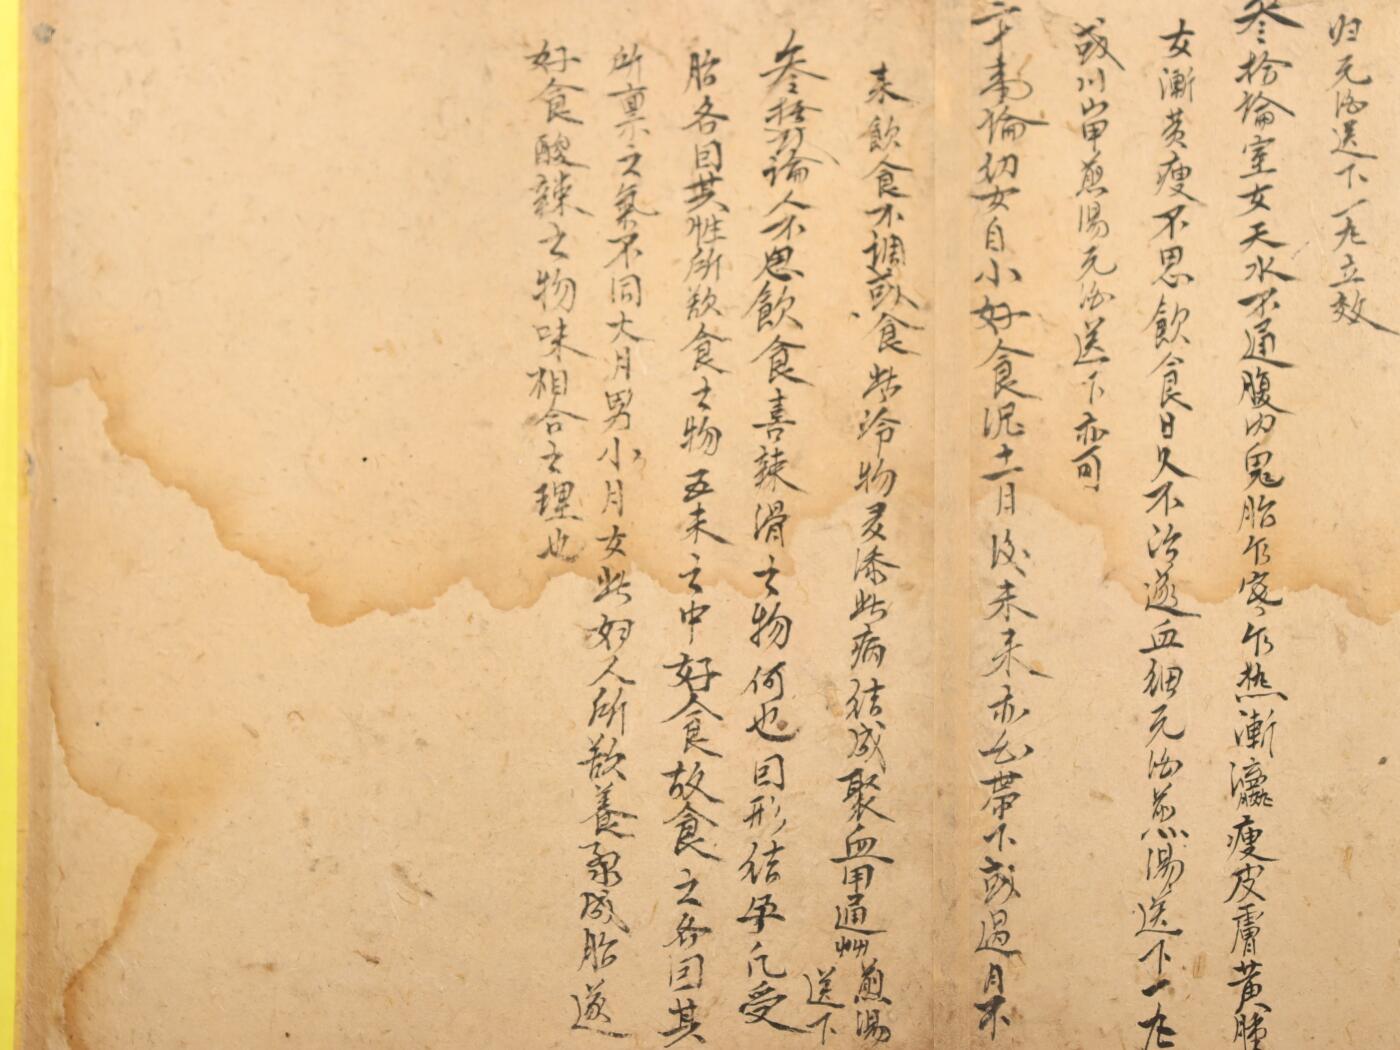 归元酒送下一丸立效
叁拾論室女天水不通腹内鬼胎乍寒乍热漸瀛瘦皮膚黄腫
女漸黄瘦不思飲食日久不治遂血細元酒煎湯送下一丸
或川山甲煎湯元酒送下亦可
論幼女自小好食泥土月後未来亦名带下或過月不
来飲食不調或食些冷物又添些病结成聚血用通草煎湯
送下
論人不思飲食喜辣滑之物何也因形结孕凡受
胎各因其性所欲食之物五未之中好食故食之各因其
所禀之氣不同大月男小月女此妇人所欲養氣成胎遂
好食酸辣之物味相合之理也